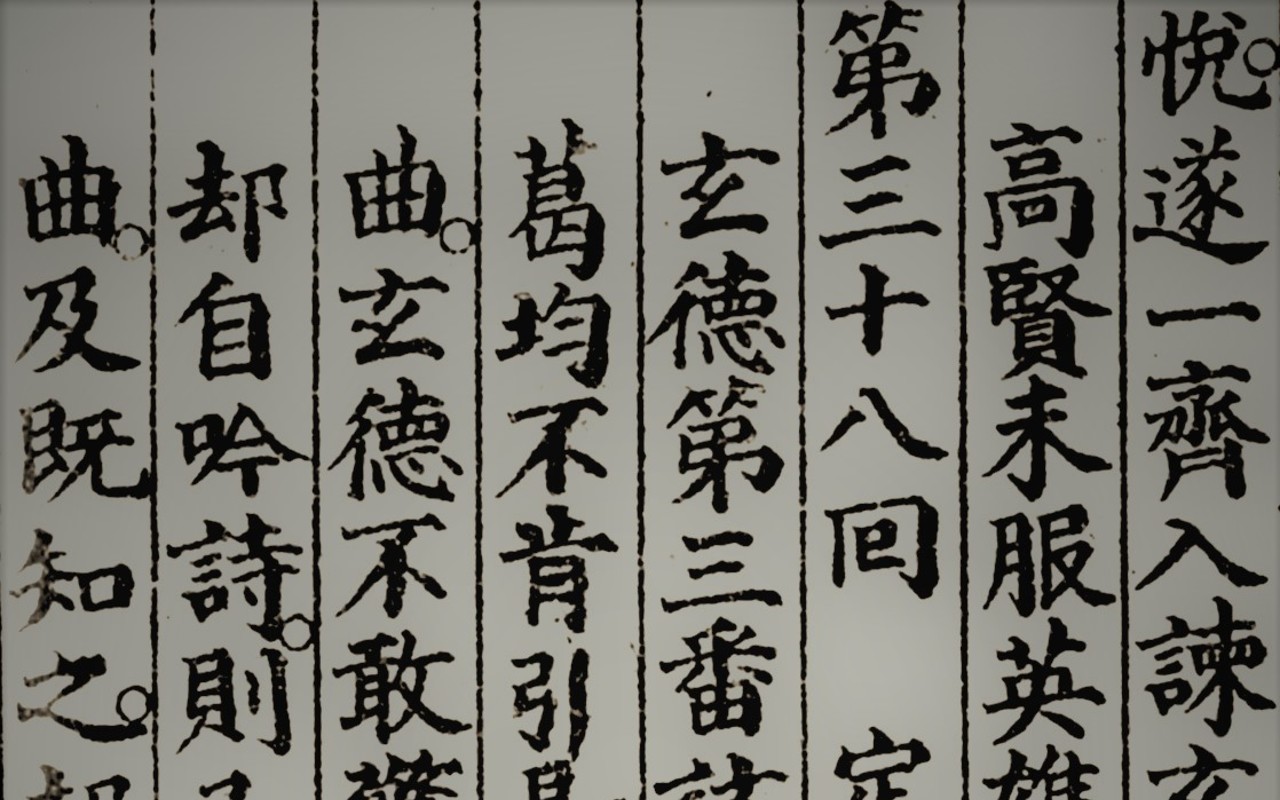 悅。遂一齊入諫玄
高賢未服英雄
第三十八回 定
玄德第三番訪
葛均不肯引見
曲。玄德不敢驚
却自吟詩。則
曲。及既知之。